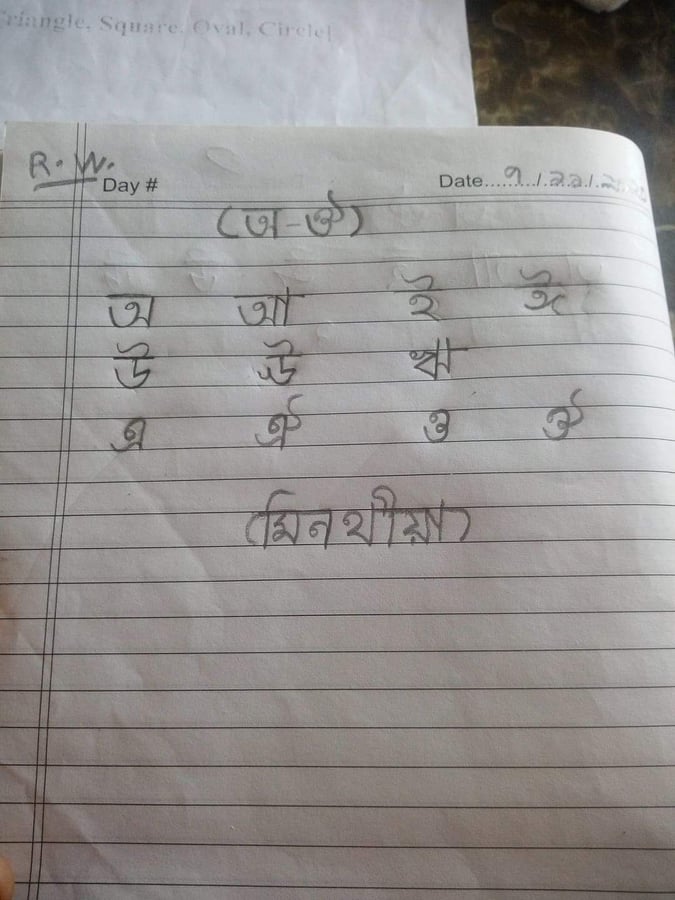 Triangle, Square, Oval, Circle]
R. W.
Day #
Date......৭../.২২./.
(অ-ঔ)
অ আ ই ঈ
উ ঊ ঋ
এ ঐ ও ঔ
(মিনথীয়া)